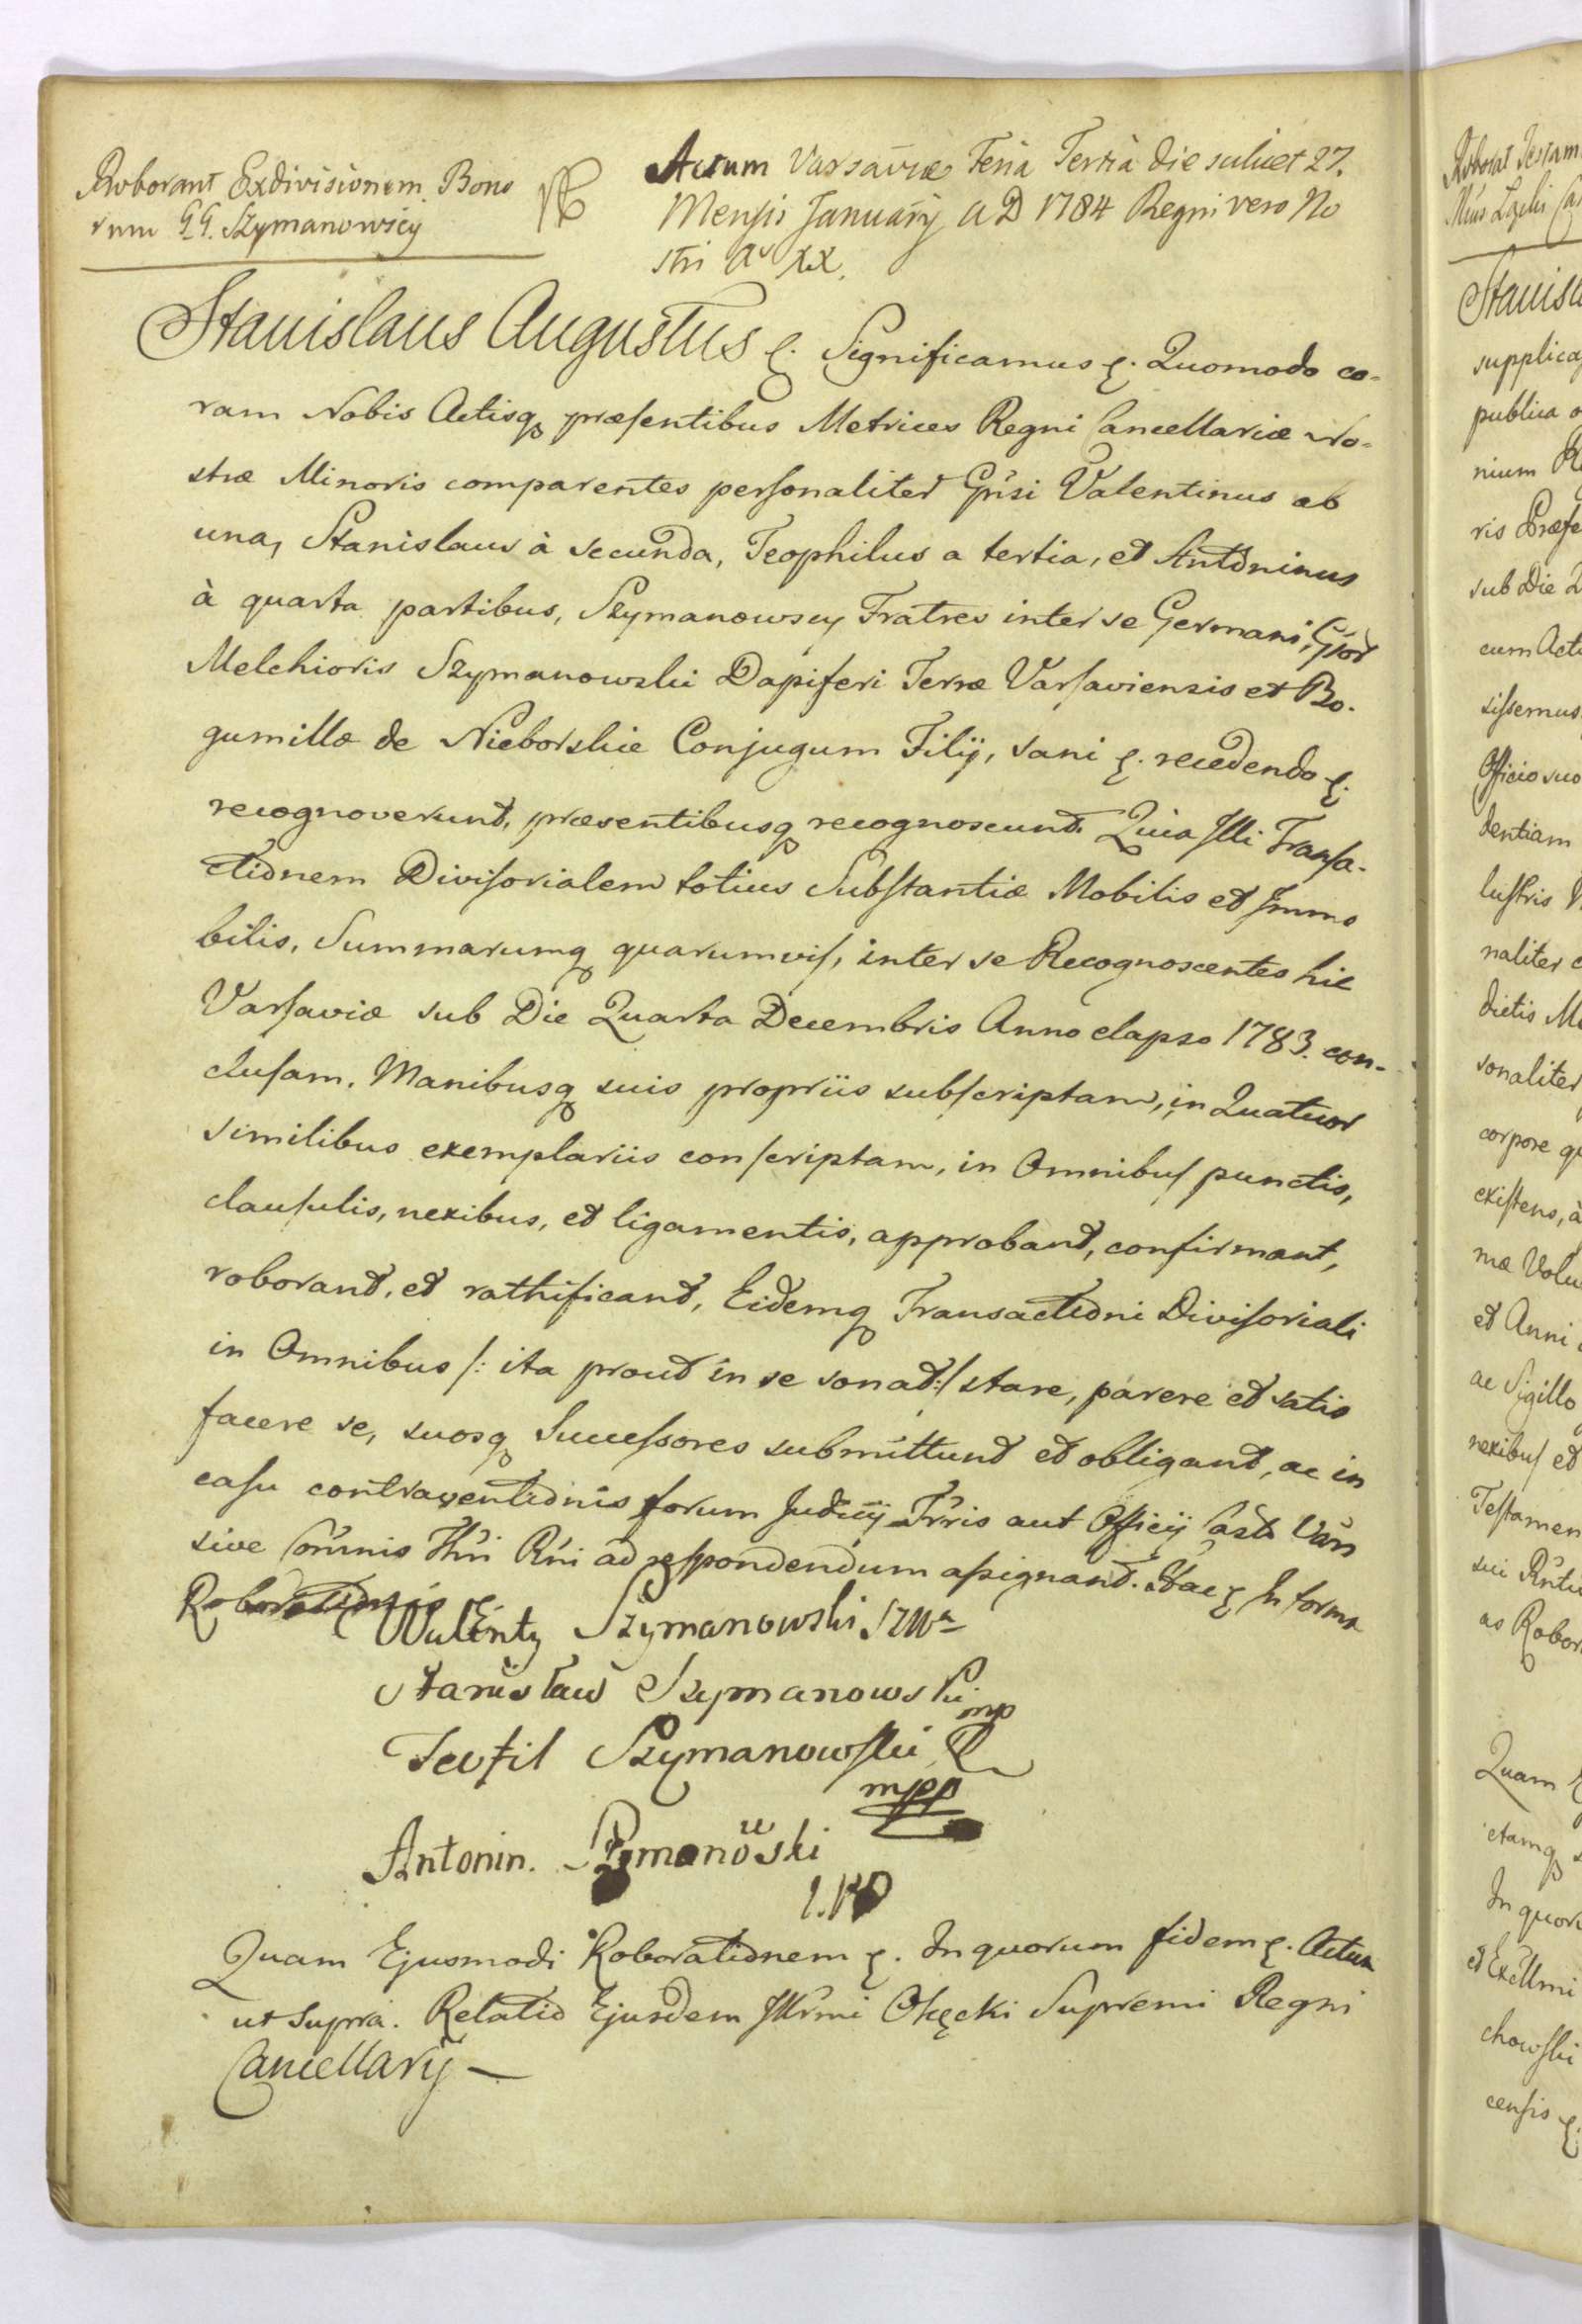 Roborant Exdivisionem Bono
rum G.G. Szymanowscy
Actum Varsaviæ Feria Tertia die scilicet 27.
Mensis Januarij A D 1784 Regni vero No
stri Aº XX.
Stanislaus Augustus &. Significamus &. Quomodo co-
ram Nobis Actisq præsentibus Metrices Regni Cancellariæ No-
stræ Minoris comparentes personaliter Gnsi Valentinus ab
una, Stanislaus à secunda, Teophilus a tertia, et Antoninus
à quarta partibus, Szymanowscy Fratres inter se Germani, Gsor
Melchioris Szymanowski Dapiferi Terræ Varsaviensis et Bo-
gumillæ de Nieborskie Conjugum Filij, sani &. recedendo &.
recognoverunt, præsentibusq recognoscunt. Quia Illi Transa-
ctionem Divisorialem totius Substantiæ Mobilis et Immo
bilis, Summarumq quarumvis, inter se Recognoscentes hic
Varsaviæ sub Die Quarta Decembris Anno elapso 1783. con-
clusam. Manibusq suis propriis subscriptam, in Quatuor
similibus exemplariis conscriptam, in Omnibus punctis,
clausulis, nexibus, et ligamentis, approbant, confirmant,
roborant, et rathificant, Eidemq Transactioni Divisoriali
in Omnibus /: ita prout in se sonat :/ stare, parere et satis
facere se, suosq Successores submittunt et obligant, ac in
casu contraventionis forum Judicij Trris aut Officij Castr Vars
sive Comnis Thri Rni ad respondendum assignant. Hac & In forma
Roborationis
Walenty Szymanowski
Stanisław Szymanowski
mp
Teofil Szymanowski
mpp
Antonin. Szymanowski
Quam Ejusmodi Roborationem &. In quorum fidem &. Actum
ut Supra. Relatio Ejusdem Illrmi Okęcki Supremi Regni
Cancellarij —
Roborat Testam
Stanisla
supplica
publica
nium
ris Præse
sub Die
cum Act
sissemus
Officio suo
dentiam
lustris
naliter
dictis
sonaliter
corpore
existens, à
mæ Volu
et Anni
ac Sigillo
nexibus et
Testamen
sui
as Robor
Quam
ctamq
In quor
et Excllmi
chowski
censis &.